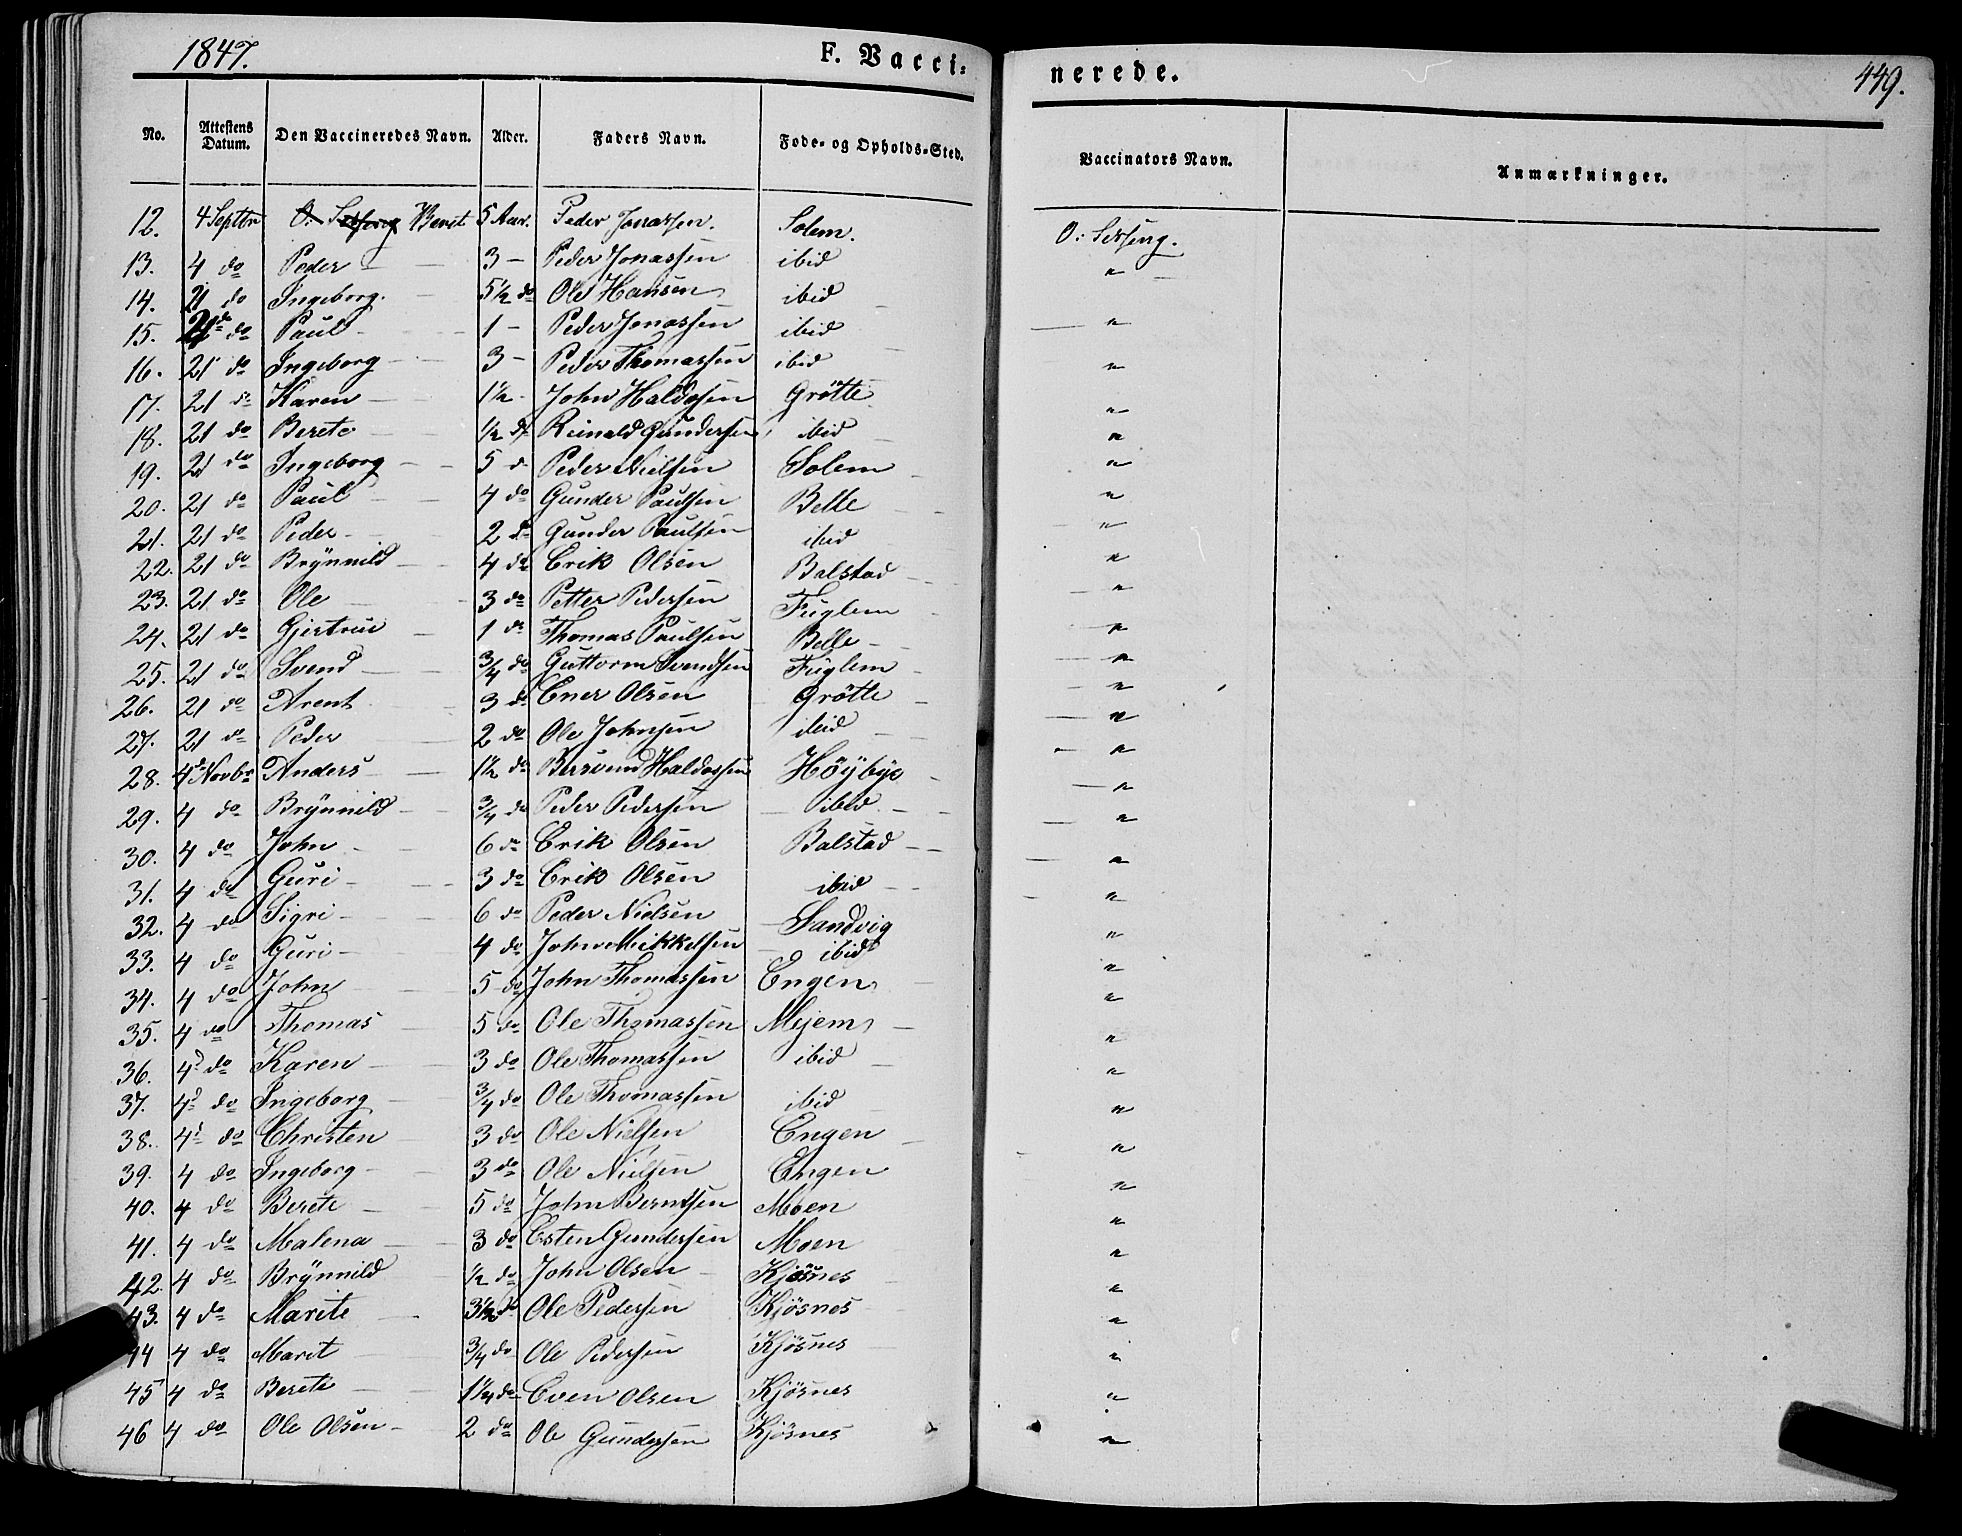 1847.
F. Vacci-
nerede.
449.
No. Attestens Datum. Den Vaccineredes Navn. Alder. Faders Navn. Føde- og Opholds-Sted. Vaccinators Navn. Anmærkninger.
12. 4 Septbr Beret 5 Aar. Peder Jonassen. Solem.
13. 4 do Peder 3 - Peder Jonassen ibid "
14. 21 do Ingeborg. 5 1/2 do Ole Hansen ibid
15. 21 do Paul 1 - Peder Jonassen ibid "
16. 21 do Ingeborg 3 - Peder Thomassen ibid "
17. 21 do Karen 1 1/2 - John Haldosen Grötte "
18. 21 do Berete 1/2 d Reinald Gundersen ibid "
19. 21 do Ingeborg 5 d Peder Nielsen Solem "
20. 21 do Paul 4 do Gunder Paulsen Belle "
21. 21 do Peder 2 d Gunder Paulsen ibid "
22. 21 do Brynnild 4 do Erik Olsen Balstad "
23. 21 do Ole 3 do Petter Pedersen Fuglem "
24. 21 do Gjertrui 1 do Thomas Paulsen Belle "
25. 21 do Svend 3/4 do Guttorm Svendsen Fuglem "
26. 21 do Arent 3 do Ener Olsen Grötte "
27. 21 do Peder 2 do Ole Johnsen ibid "
28. 4d Novbr Anders 1 1/2 do Bersvend Haldossen Höybye "
29. 4 do Brynnild 3/4 do Peder Pedersen ibid "
30. 4 do John 6 do Erik Olsen Balstad "
31. 4 do Guri 3 do Erik Olsen ibid "
32. 4 do Sigri 6 do Peder Nielsen Sandvig "
33. 4 do Guri 4 do John Mikkelsen ibid "
34. 4 do John 5 do John Thomassen Engen "
35. 4 do Thomas 5 do Ole Thomassen Mejem "
36. 4d do Karen 3 do Ole Thomassen ibid "
37. 4d do Ingeborg 3/4 do Ole Thomassen ibid "
38. 4d do Christen 3 do Ole Nielsen Engen "
39. 4 do Ingeborg 3 do Ole Nielsen Engen "
40. 4 do Berete 5 do John Berntsen Moen "
41. 4 do Malena 3 do Esten Gundersen Moen "
42. 4 do Brynnild 1/2 do John Olsen Kjösnes "
43. 4 do Marite 3 1/2 do Ole Pedersen Kjösnes "
44 4 do Marit 3/4 do Ole Pedersen Kjösnes "
45 4 do Berete 1 1/4 do Even Olsen Kjösnes "
46 4 do Ole Olsen 2 do Ole Gundersen Kjösnes "